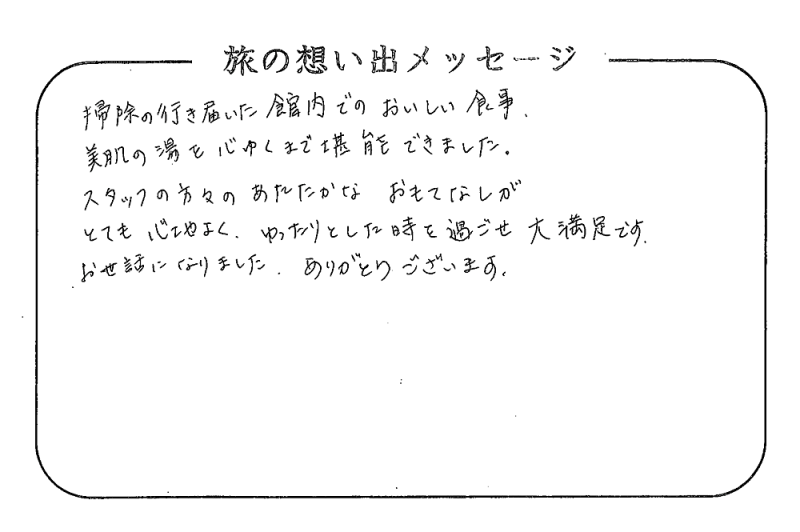 旅の想い出メッセージ
掃除の行き届いた館内でのおいしい食事、
美肌の湯を心ゆくまで堪能できました。
スタッフの方々のあたたかな おもてなしが
とても心地よく、ゆったりとした時を過ごせ大満足です。
お世話になりました。ありがとうございます。